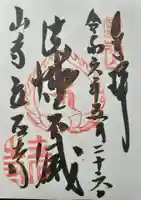 奉拝
令和六年五月二十六日
法燈不滅
山寺立石寺